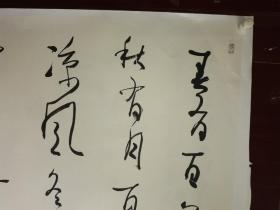 春有百
秋有月
凉风冬